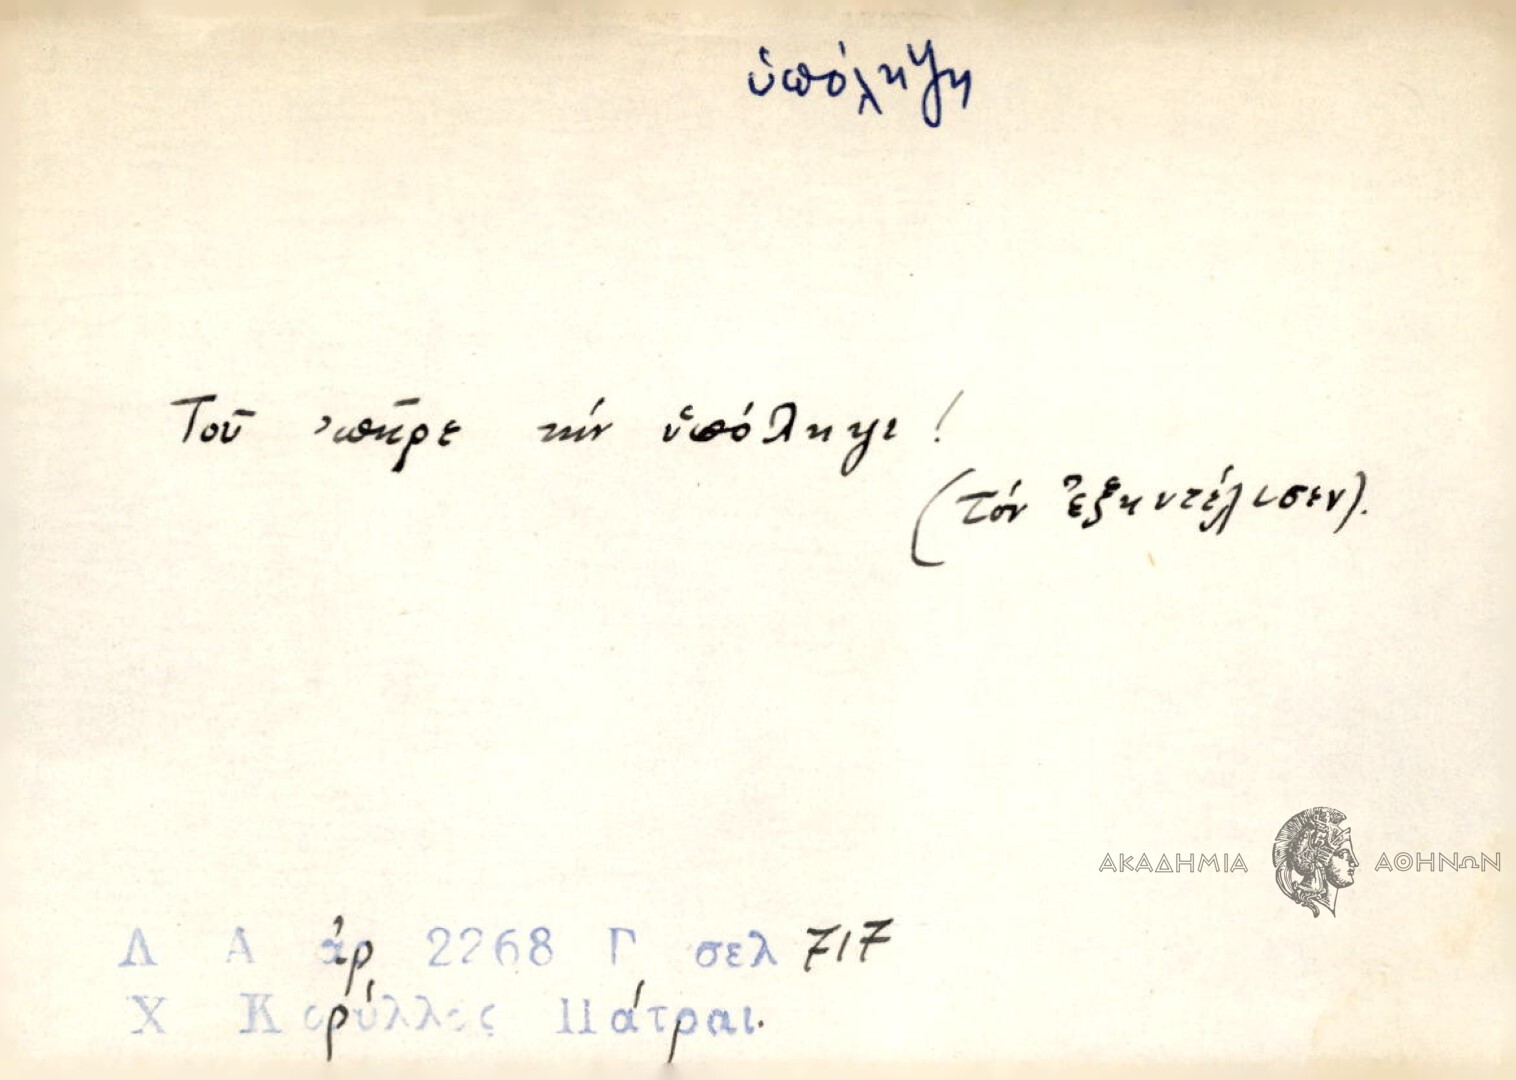 ὑπόληψη
Τοῦ 'πῆρε τήν ὑπόληψι!
(τόν ἐξηντέλισεν).
ΑΚΑΔΗΜΙΑ ΑΘΗΝΩΝ
Λ Α ἀρ 2268 Γ σελ 717
Χ Κορύλλος Πάτραι.